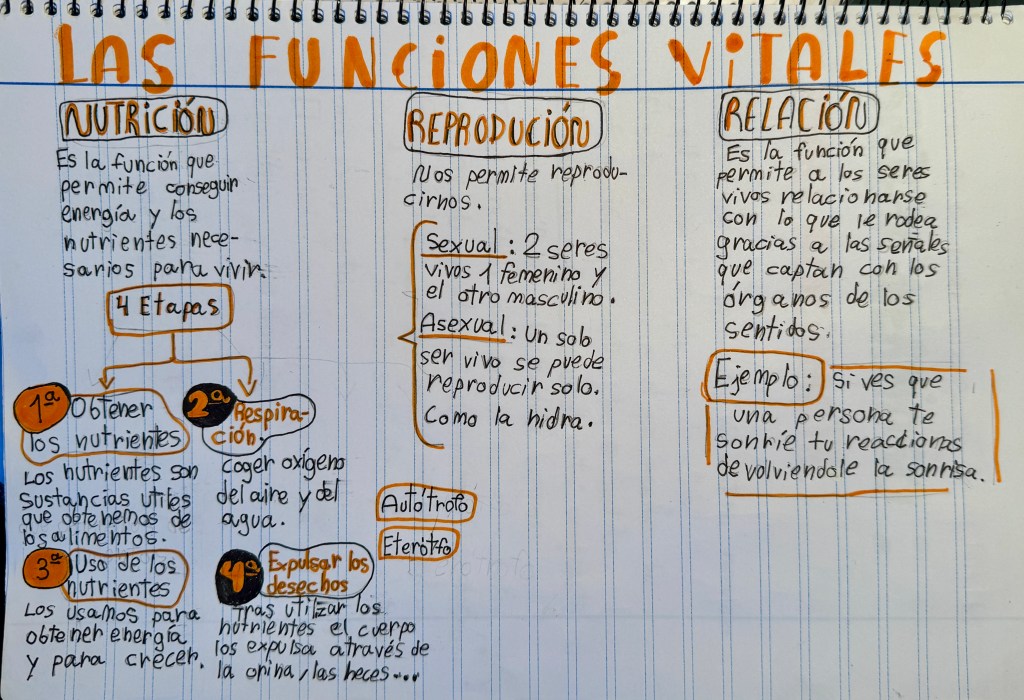 LAS FUNCIONES VITALES
NUTRICIÓN
Es la función que
permite conseguir
energía y los
nutrientes nece-
sarios para vivir.
4 Etapas
1ª Obtener
los nutrientes
Los nutrientes son
sustancias utiles
que obtenemos de
los alimentos.
2ª Respira-
ción.
coger oxígeno
del aire y del
agua.
3ª Uso de los
nutrientes
Los usamos para
obtener energía
y para crecer.
4ª Expulsar los
desechos
Tras utilizar los
nutrientes el cuerpo
los expulsa através de
la orina, las heces...
REPRODUCIÓN
Nos permite reprodu-
cirnos.
Sexual: 2 seres
vivos 1 femenino y
el otro masculino.
Asexual: Un solo
ser vivo se puede
reproducir solo.
Como la hidra.
Autótrofo
Eterótfo
RELACIÓN
Es la función que
permite a los seres
vivos relacionarse
con lo que le rodea
gracias a las señales
que captan con los
órganos de los
sentidos.
Ejemplo: Si ves que
una persona te
sonríe tu reaccionas
devolviendole la sonrisa.